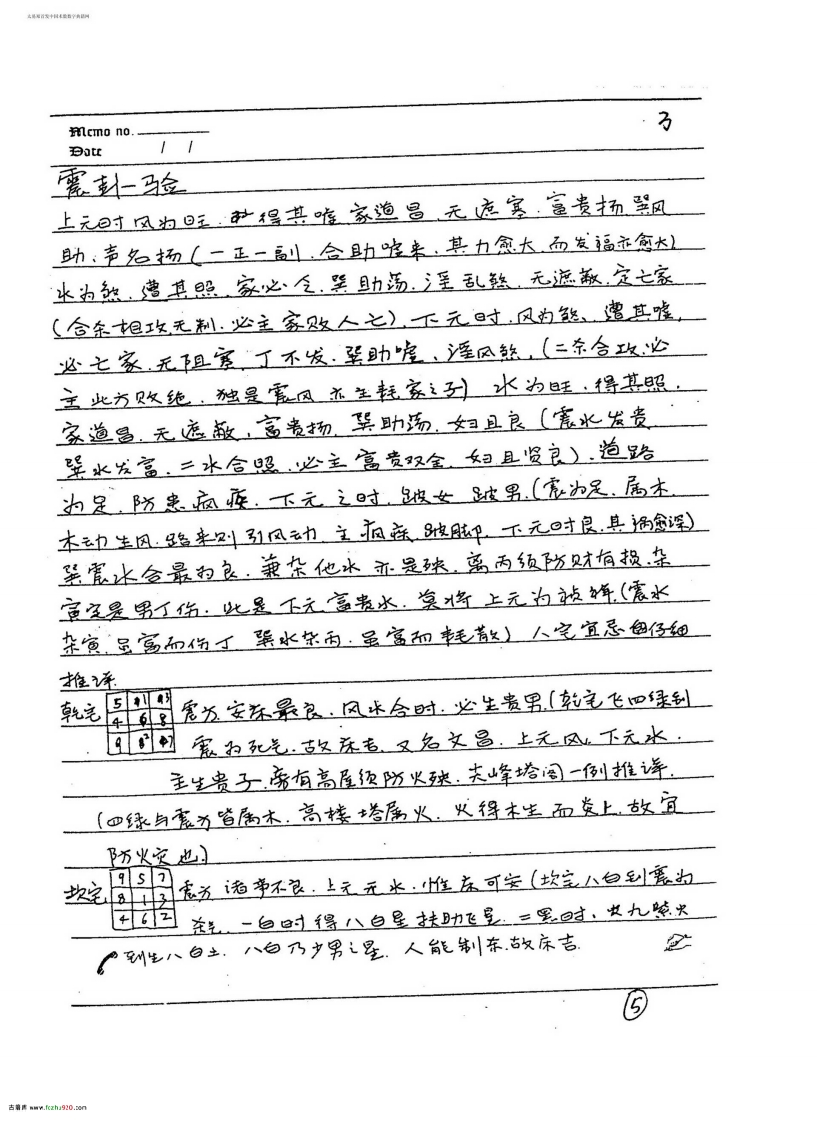 Memo no.
3
Date / /
震卦一马佥
上元时风为旺.得其嘘家道昌.无遮塞.富贵扬巽风
助.声名扬(一正一副.合助嘘来.其力愈大而发福亦愈大)
水为煞.遭其照.家必.巽助荡.淫乱煞.无遮蔽.定亡家
(合杀相攻无制.必主家败人亡).下元时.风为煞.遭其嘘,
必亡家.无阻塞.丁不发.巽助嘘.淫风煞.(二杀合攻.必
主此方败绝.独是震风亦主耗家之子)水为旺.得其照.
家道昌.无遮蔽.富贵扬.巽助荡.妇且良(震水发贵
巽水发富.二水合照.必主富贵双全.妇且贤良).道路
为足.防患疯疾.下元之时.跛女跛男.(震为足.属木.
木动生风.路来则引风动.主疯疾跛脚.下元时良.其祸愈深)
巽震水合最为良.兼杂他水亦是殃.离丙须防财有损.杂
寅定是男丁伤.此是下元富贵水.莫将上元为祯祥.(震水
杂寅.虽富而伤丁巽水杂丙.虽富而耗散)八宅宜忌仔细
推详.
乾宅
5 1 3
4 6 8
9 2 7
震方安床最良.风水合时.必生贵男.(乾宅飞四绿到
震为死气.故床吉.又名文昌.上元风.下元水.
主生贵子.旁有高屋须防火殃.尖峰塔阁一例推详.
(四绿与震方皆属木.高楼塔属火.火得木生而炎上.故宜
防火灾也.)
坎宅
9 5 7
8 1 3
4 6 2
震方诸事不良.上元无水.惟床可安(坎宅八白到震为
杀气.一白时得八白星扶助飞星.二黑时.九紫火
到生八白土.八白乃少男之星.人能制杀.故床吉.
⑤
古易斋 www.fczhu920.com